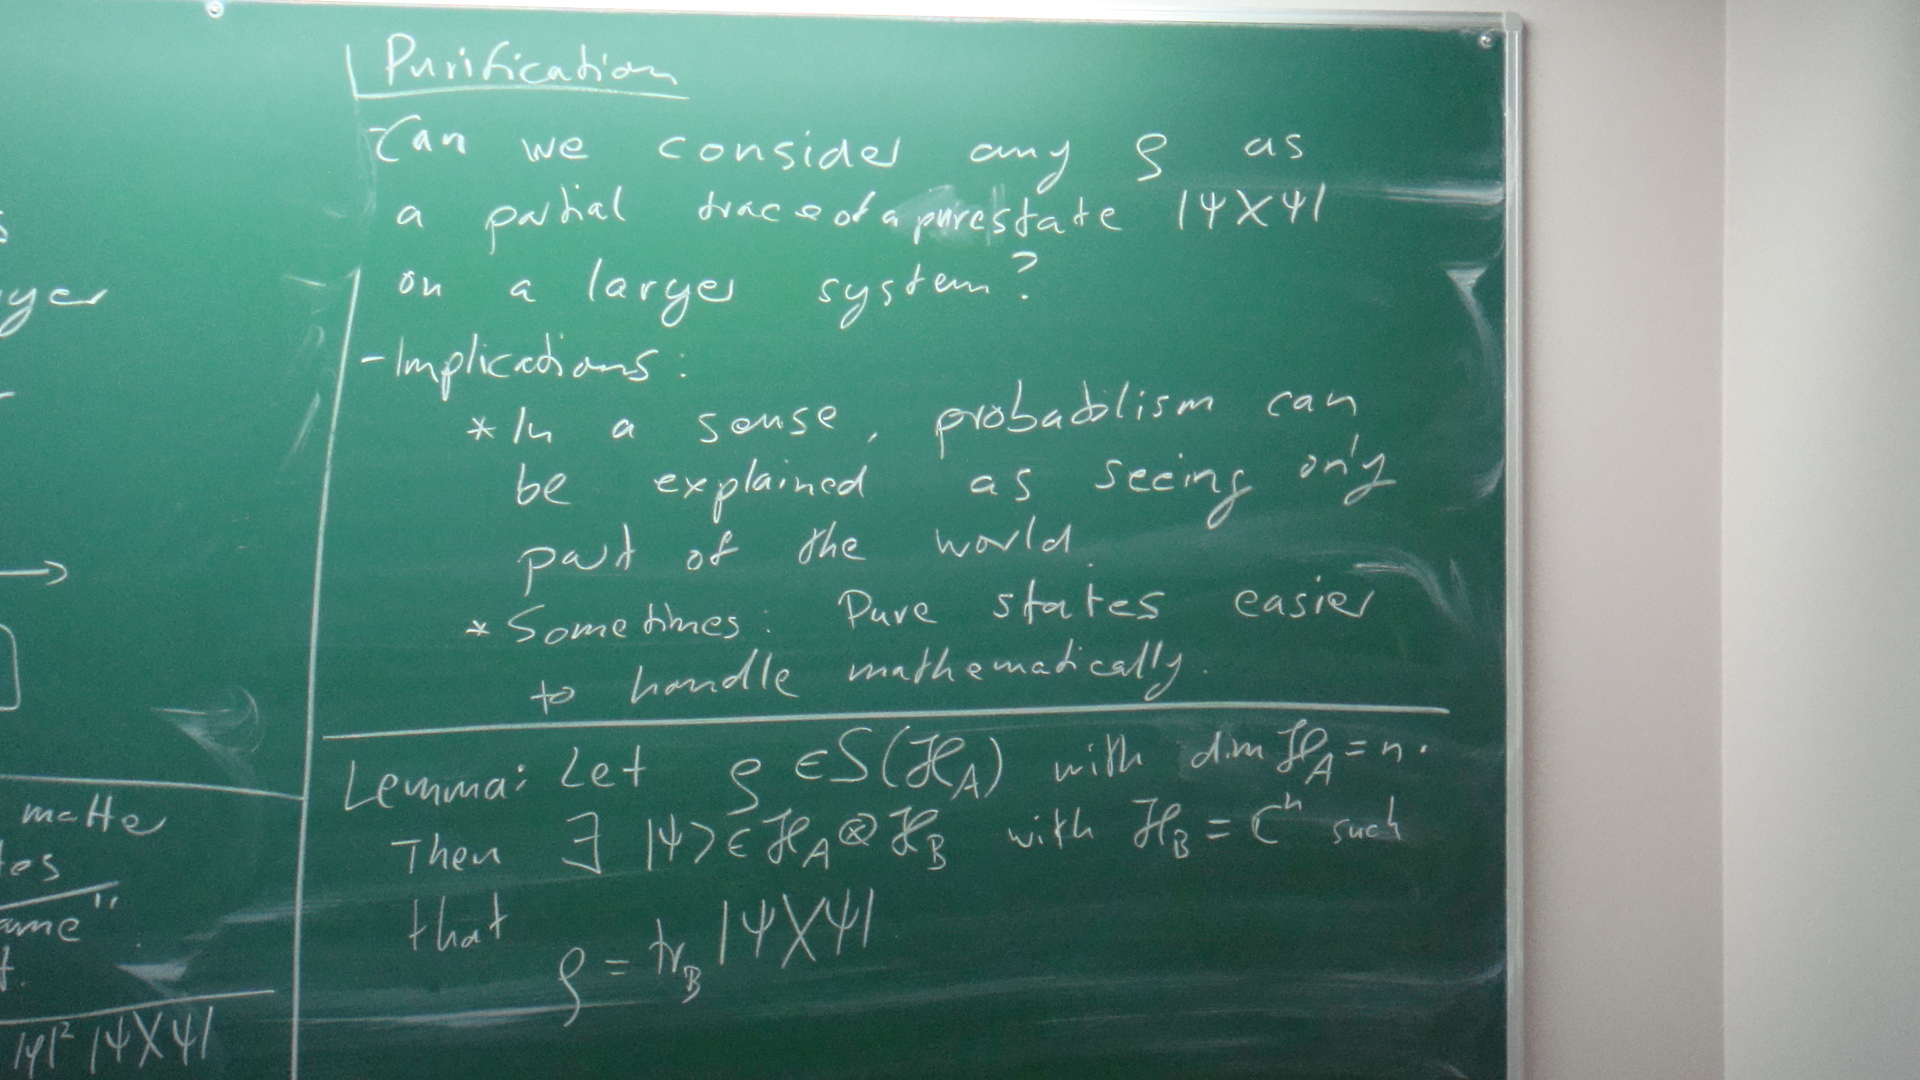 yer
matte
tes
ame"
t.
|φ|² |Ψ⟩⟨Ψ|
Purification
-Can we consider any ρ as
a partial trace of a pure state |Ψ⟩⟨Ψ|
on a larger system?
-Implications:
* In a sense, probabilism can
be explained as seeing only
part of the world.
* Sometimes: Pure states easier
to handle mathematically.
Lemma: Let ρ ∈ S(ℋ_A) with dim ℋ_A = n.
Then ∃ |Ψ⟩ ∈ ℋ_A ⊗ ℋ_B with ℋ_B = ℂⁿ such
that
ρ = tr_B |Ψ⟩⟨Ψ|